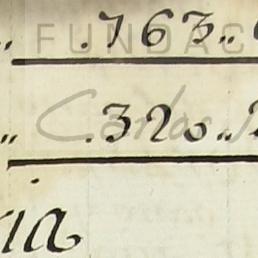 „ .763..
FUNDAC
„ .320..2
Carlos
ria